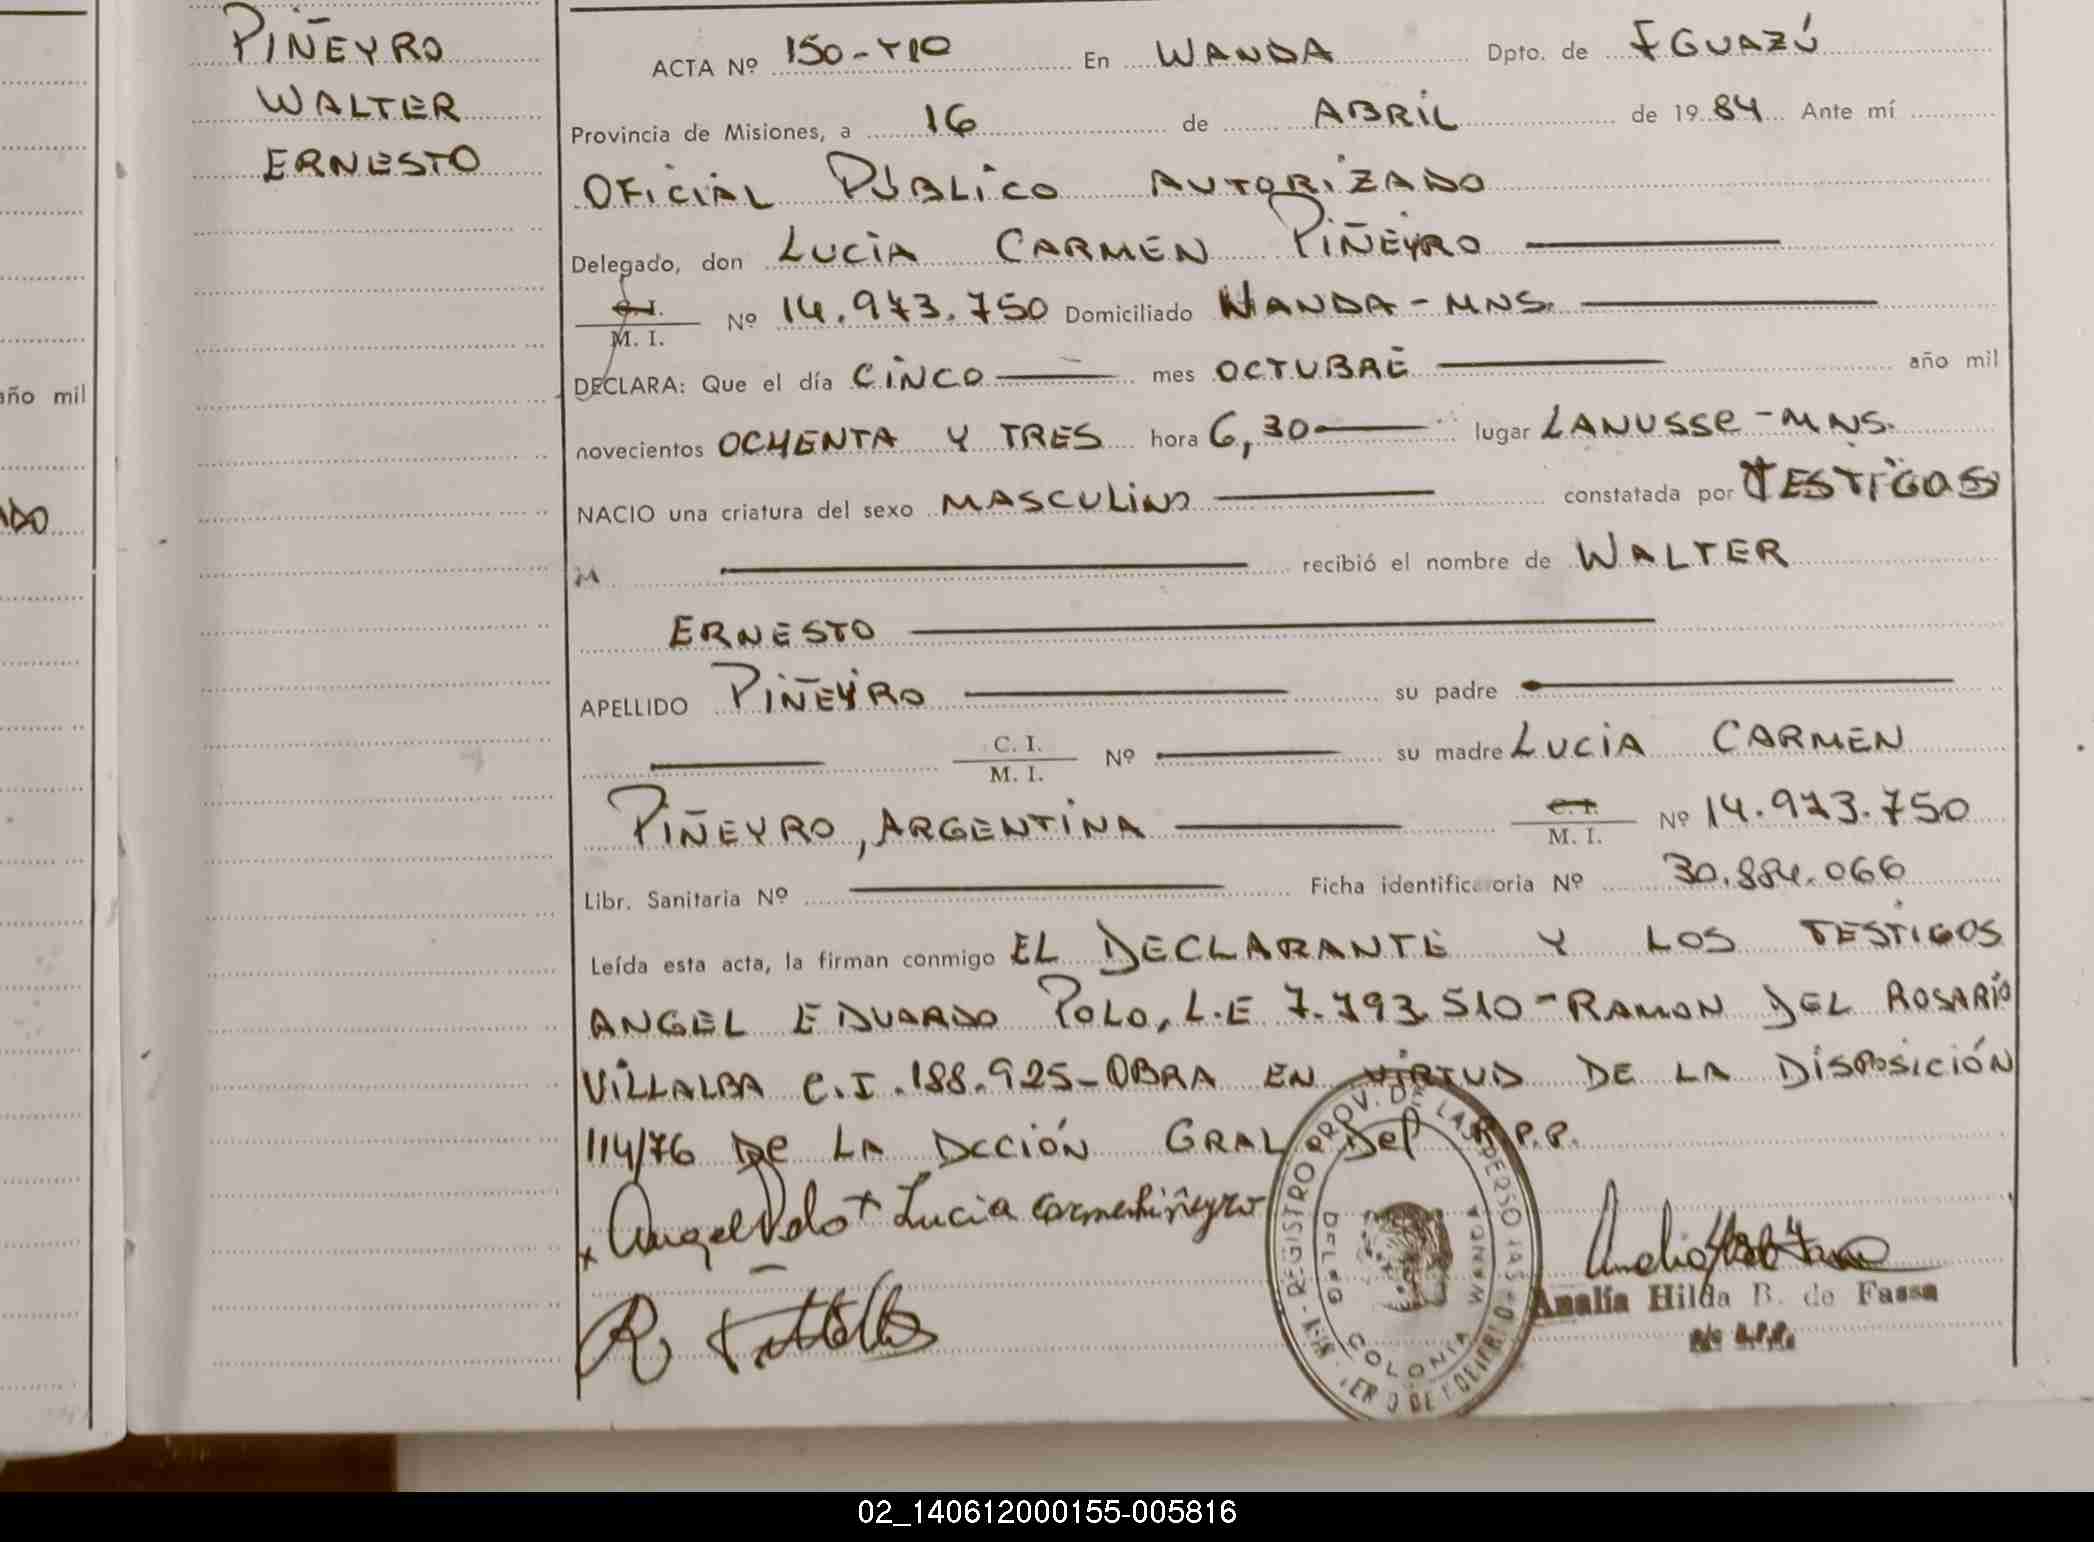 PIÑEYRO
WALTER
ERNESTO
año mil
ACTA Nº 150-YIO En WANDA Dpto. de IGUAZÚ
Provincia de Misiones, a 16 de ABRIL de 1984 Ante mí
OFICIAL PÚBLICO AUTORIZADO
Delegado, don LUCIA CARMEN PIÑEYRO
C. I.
M. I. Nº 14.973.750 Domiciliado WANDA - MNS.
DECLARA: Que el día CINCO mes OCTUBRE año mil
novecientos OCHENTA Y TRES hora 6,30 lugar LANUSSE - MNS.
NACIO una criatura del sexo MASCULINO constatada por TESTIGOS
recibió el nombre de WALTER
ERNESTO
APELLIDO PIÑEYRO su padre
C. I.
M. I. Nº su madre LUCIA CARMEN
PIÑEYRO, ARGENTINA C. I.
M. I. Nº 14.973.750
Libr. Sanitaria Nº Ficha identificatoria Nº 30.884.066
Leída esta acta, la firman conmigo EL DECLARANTE Y LOS TESTIGOS
ANGEL EDUARDO POLO, L.E 7.793.510 - RAMON DEL ROSARIO
VILLALBA C.I. 188.925 - OBRA EN VIRTUD DE LA DISPOSICIÓN
114/76 DE LA DCCIÓN GRAL DEL R.P.P.
x Angel Polo + Lucia Carmen Piñeyro
REGISTRO PROV. DE LAS PERSONAS
DELEG. COLONIA WANDA
Analía Hilda B. de Fassa
02_140612000155-005816